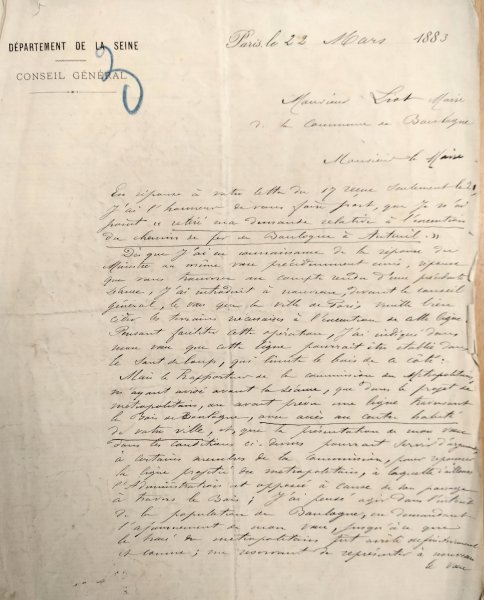 DÉPARTEMENT DE LA SEINE
CONSEIL GÉNÉRAL
Paris, le 22 Mars 1883
Monsieur Liot Maire
de la Commune de Boulogne
Monsieur le Maire
En réponse à votre lettre du 17 reçue seulement le
J'ai l'honneur de vous faire part, que je n'ai
point "retiré ma demande relative à l'exécution
du chemin de fer de Boulogne à Auteuil."
Dès que j'ai eu connaissance de la réponse du
Ministre au même vœu précédemment émis, réponse
que vous trouverez au compte rendu d'une précédente
séance, j'ai introduit à nouveau, devant le conseil
général, le vœu que la ville de Paris veuille bien
céder les terrains nécessaires à l'exécution de cette ligne.
Pensant faciliter cette opération, j'ai indiqué dans
mon vœu que cette ligne pourrait être établie dans
le Saut de loup, qui limite le bois de ce côté.
Mais le Rapporteur de la commission du Métropolitain
m'ayant avisé avant la séance, que dans le projet de
métropolitain, on avait prévu une ligne traversant
le Bois de Boulogne, avec accès au centre habité
de votre ville, et que la présentation de mon vœu
dans les conditions ci-dessus pourrait servir d'argument
à certains membres de la Commission, pour repousser
la ligne projetée du métropolitain, à laquelle d'ailleurs
l'Administration est opposée à cause de son passage
à travers le Bois; j'ai pensé agir dans l'intérêt
de la population de Boulogne, en demandant
l'ajournement de mon vœu, jusqu'à ce que
le tracé du métropolitain fut arrêté définitivement
et connu; me réservant de représenter à nouveau
le vœu